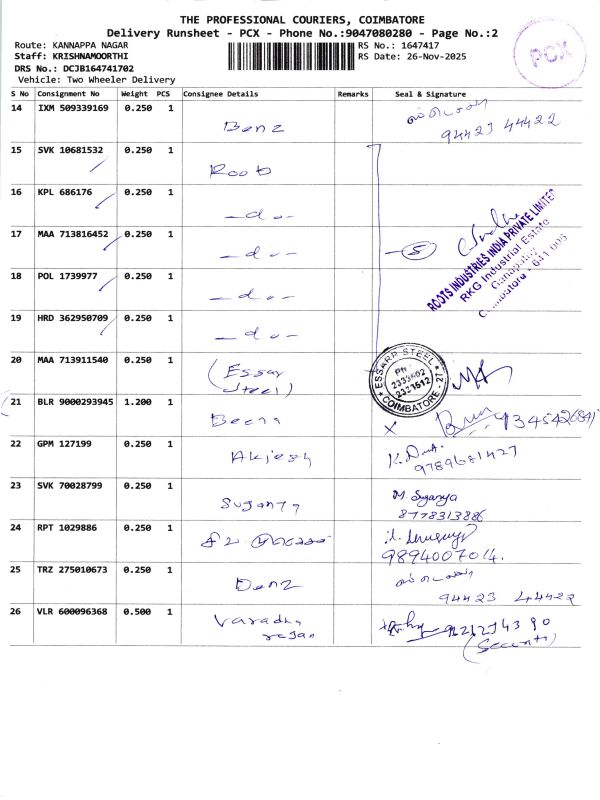 THE PROFESSIONAL COURIERS, COIMBATORE
Delivery Runsheet - PCX - Phone No.:9047080280 - Page No.:2
Route: KANNAPPA NAGAR
RS No.: 1647417
Staff: KRISHNAMOORTHI
RS Date: 26-Nov-2025
DRS No.: DCJB164741702
Vehicle: Two Wheeler Delivery
PCX
S No Consignment No Weight PCS Consignee Details Remarks Seal & Signature
14 IXM 509339169 0.250 1
Benz
94423 44422
15 SVK 10681532 0.250 1
Roots
16 KPL 686176 0.250 1
-do-
17 MAA 713816452 0.250 1
-do-
5
ROOTS INDUSTRIES INDIA PRIVATE LIMITED
RKG Industrial Estate
Ganapathy
Coimbatore - 641 006
18 POL 1739977 0.250 1
-do-
19 HRD 362950709 0.250 1
-do-
20 MAA 713911540 0.250 1
(Essay
Steel)
ESSARP STEEL
Ph :
2333602
2331512
COIMBATORE - 27
21 BLR 9000293945 1.200 1
Beena
22 GPM 127199 0.250 1
Akjesh
9789681427
23 SVK 70028799 0.250 1
Suganya
M. Suganya
8778313886
24 RPT 1029886 0.250 1
9894007014.
25 TRZ 275010673 0.250 1
Benz
94423 44422
26 VLR 600096368 0.500 1
Varadha
rajan